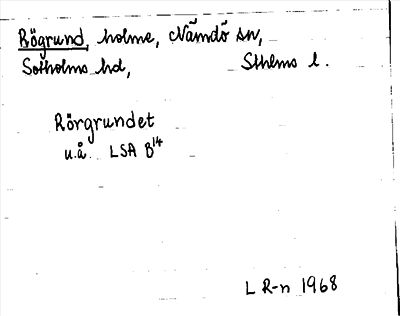 Rögrund, holme, Nämdö sn,
Sotholms hd, Sthlms l.
Rörgrundet
u.å. LSA B14
L R-n 1968